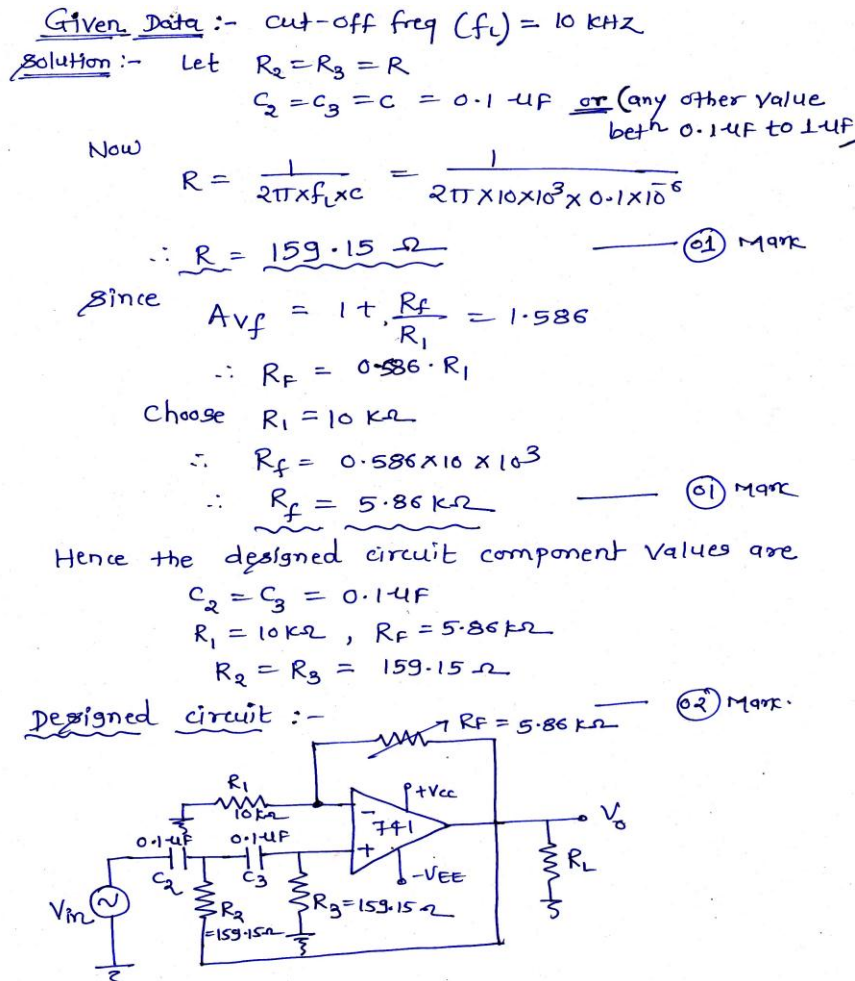 Given Data :- cut-off freq (fL) = 10 KHZ
Solution :- Let R2 = R3 = R
C2 = C3 = C = 0.1 uF or (any other value
betn 0.1uF to 1uF)
Now
R = 1 / 2π×fL×C = 1 / 2π×10×10³×0.1×10⁻⁶
∴ R = 159.15 Ω —— 01 Mark
Since AVf = 1 + Rf / R1 = 1.586
∴ RF = 0.586 · R1
Choose R1 = 10 KΩ
∴ Rf = 0.586 × 10 × 10³
∴ Rf = 5.86 KΩ —— 01 Mark
Hence the designed circuit component values are
C2 = C3 = 0.1uF
R1 = 10KΩ , RF = 5.86KΩ
R2 = R3 = 159.15 Ω
Designed circuit :- —— 02 Mark.
RF = 5.86 KΩ
R1
10KΩ
+Vcc
-
741
+
-VEE
Vo
RL
0.1uF
C2
0.1uF
C3
Vin
R2
=159.15Ω
R3 = 159.15 Ω